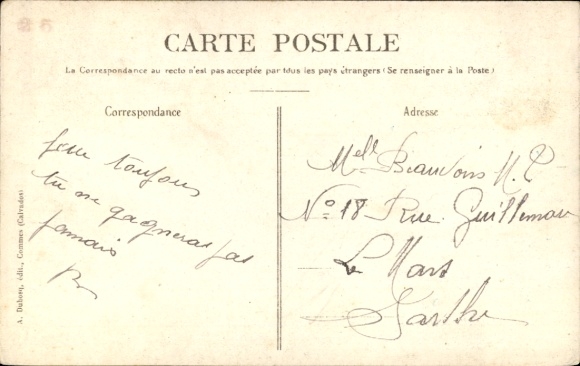 25
CARTE POSTALE
La Correspondance au recto n'est pas acceptée par tous les pays étrangers (Se renseigner à la Poste)
Correspondance
toujours
tu ne gagneras pas
jamais
Adresse
Melle Beauvois M. P
No 18 Rue Guillemare
Le Mans
Sarthe
A. Dubosq, édit., Commes (Calvados)